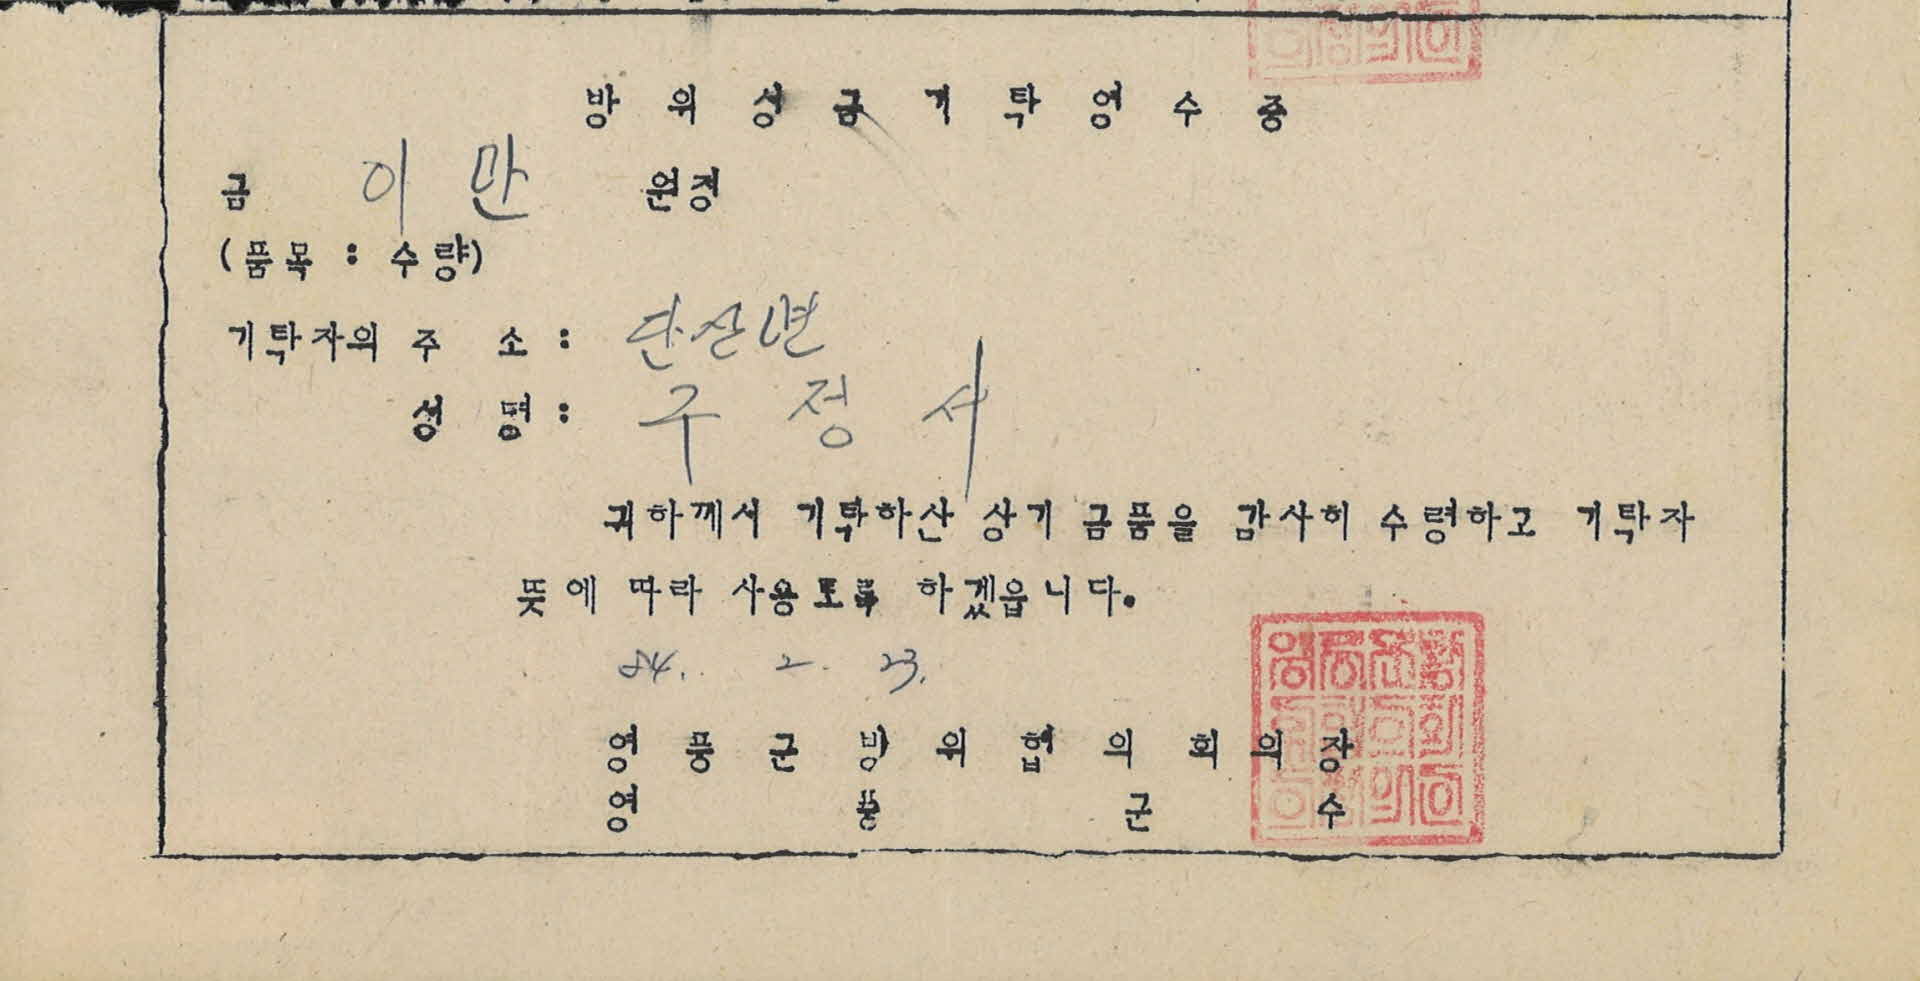 방위성금기탁영수증
금 이만 원정
(품목 : 수량)
기탁자의 주 소 : 단산면
성 명 : 구정서
귀하께서 기탁하산 상기 금품을 감사히 수령하고 기탁자
뜻에 따라 사용토록 하겠읍니다.
84. 2. 23.
영풍군방위협의회의장
영풍군수